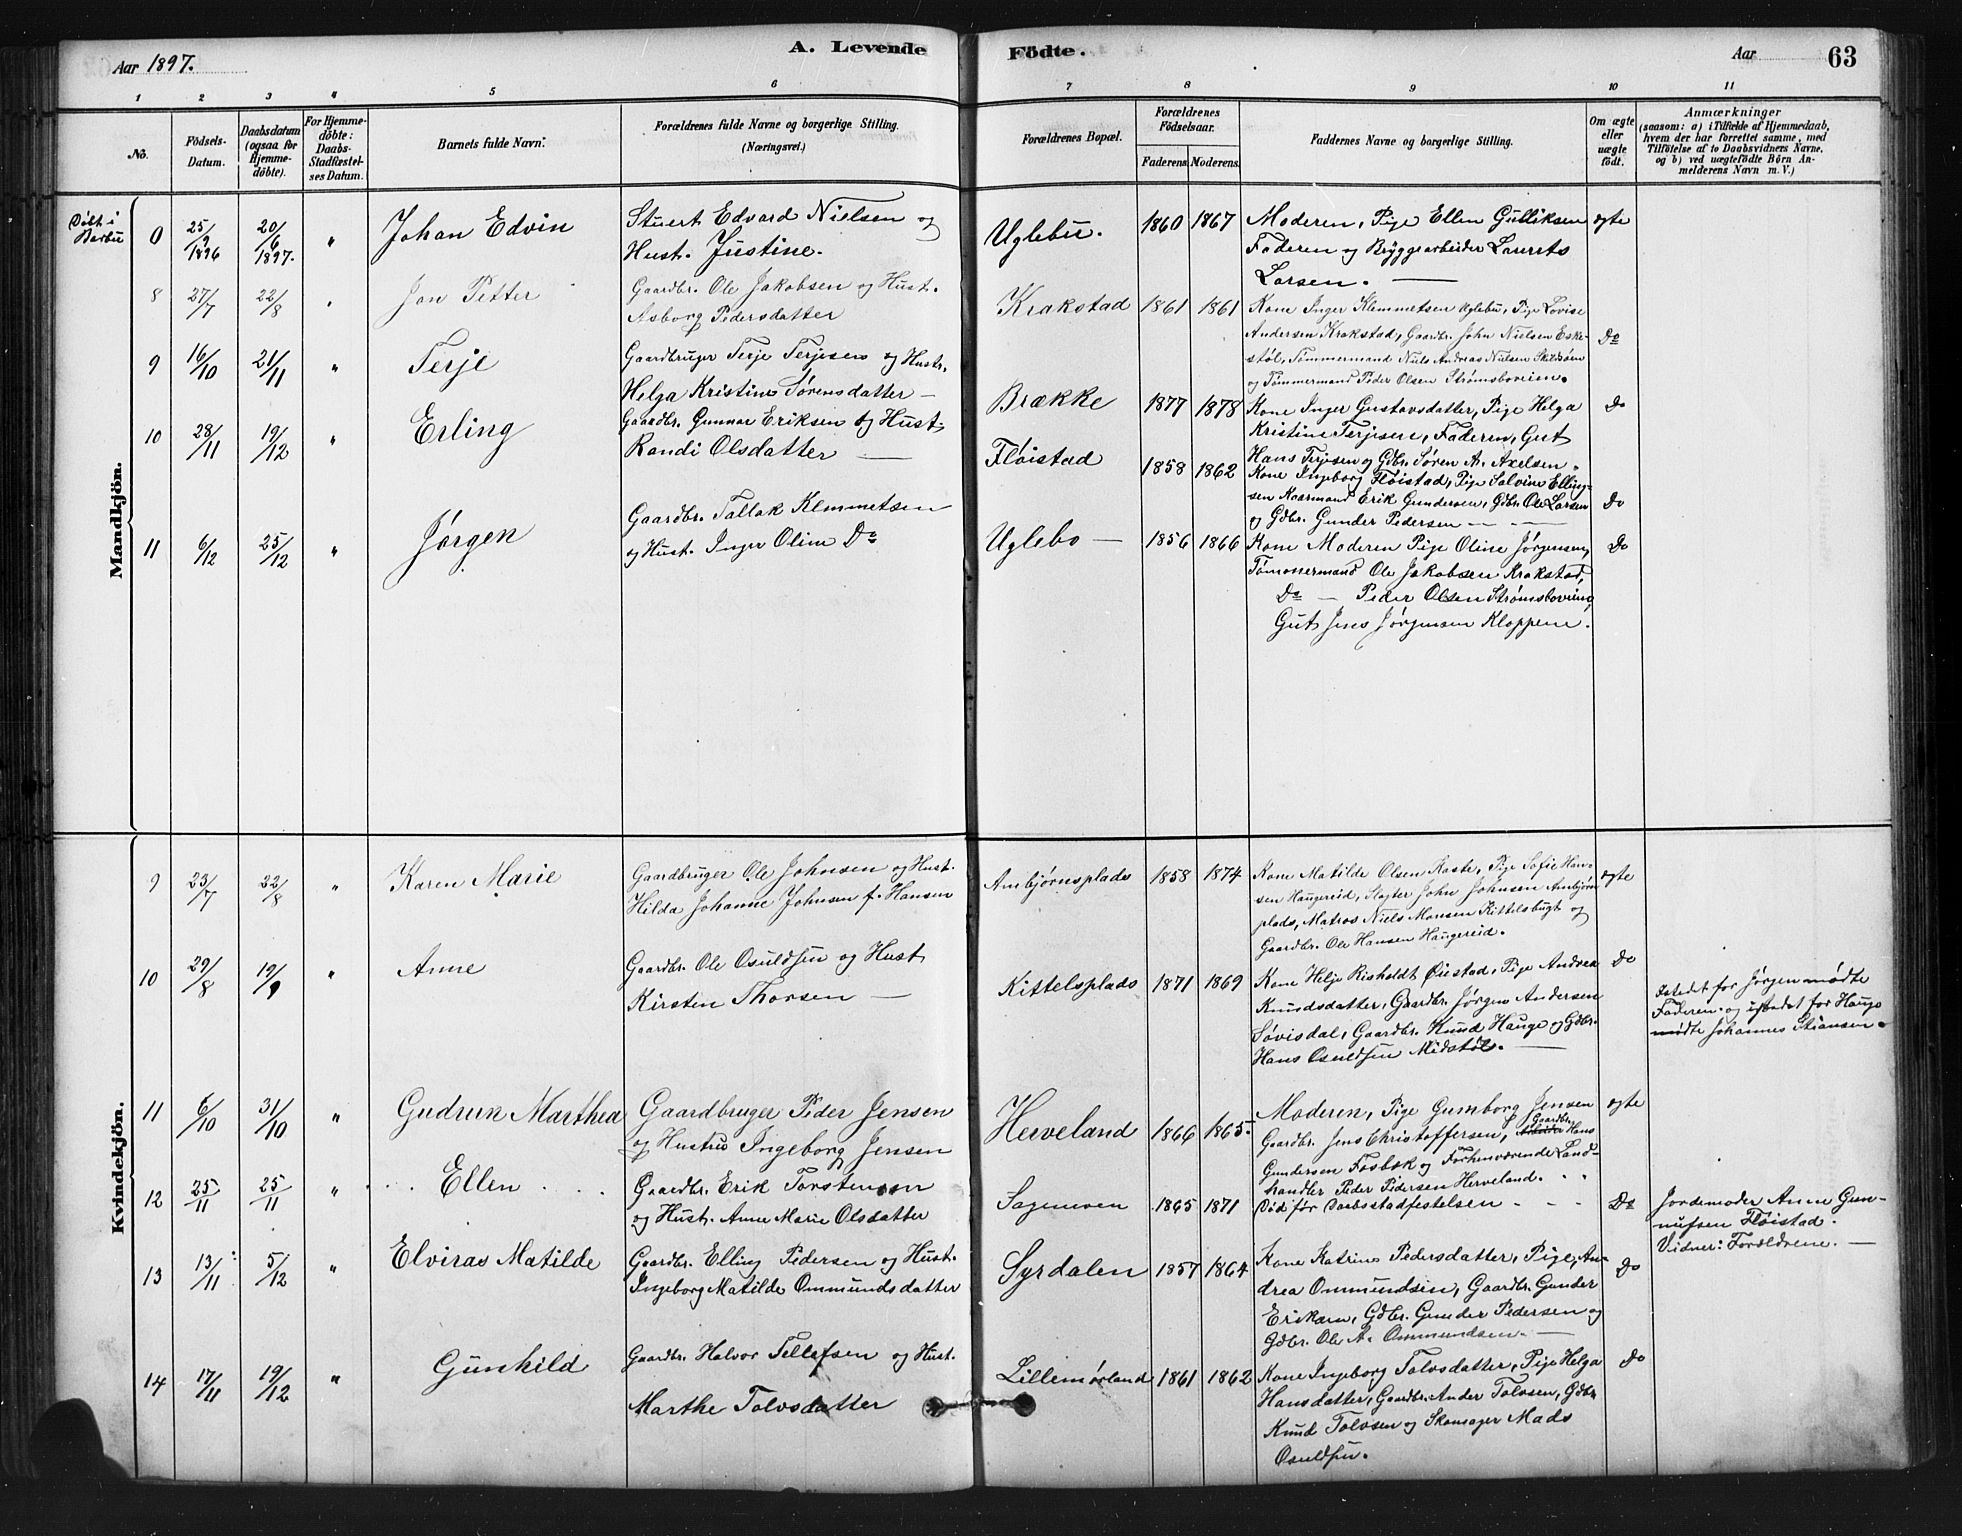 Aar 1897.
A. Levende
Födte.
Aar
63
1 2 3 4 5 6 7 8 9 10 11
No.
Födsels-
Datum.
Daabsdatum
(ogsaa for
Hjemme-
döbte).
For Hjemme-
döbte:
Daabs-
Stadfæstel-
ses Datum.
Barnets fulde Navn.
Forældrenes fulde Navne og borgerlige Stilling.
(Næringsvei.)
Forældrenes Bopæl.
Forældrenes
Födselsaar.
Faderens. Moderens.
Faddernes Navne og borgerlige Stilling.
Om ægte
eller
uægte
födt.
Anmærkninger
(saasom: a) i Tilfælde af Hjemmedaab,
hvem der har forrettet samme, med
Tilföielse af to Daabsvidners Navne,
og b) ved uægtefödte Börn An-
melderens Navn m. V.)
Mandkjön.
Døbt i
Barbu
0
25/9
1896
20/6
1897.
"
Johan Edvin
Stuert Edvard Nielsen og
Hust. Justine.
Uglebu.
1860 1867
Moderen, Pige Ellen Gulliksen
Faderen og Bryggearbeider Laurits
Larsen. —
ægte
8
27/7
22/8
"
Jon Petter
Gaardbr. Ole Jakobsen og Hust.
Asborg Pedersdatter
Krakstad
1861 1861
Kone Inger Klemmetsen Uglebu, Pige Lovise
Andersen Krakstad, Gaardbr. John Nielsen Eske-
støl, Tømmermand Niels Andreas Nielsen
og Tømmermand Peder Olsen Strømsboveien.
Do
9
16/10
21/11
"
Terje
Gaardbruger Terje Terjesen og Hustr.
Helga Kristine Sørensdatter —
Brække
1877 1878
Kone Inger Gustavsdatter, Pige Helga
Kristine Terjesen, Faderen, Gut
Hans Terjesen og Gdbr. Søren A. Axelsen.
Do
10
28/11
19/12
"
Erling
Gaardbr. Gunnar Eriksen og Hust.
Randi Olsdatter —
Fløistad
1858 1862
Kone Ingeborg Fløistad, Pige Salvine Elling-
sen Erik Gundersen, Gdbr. Ole Larsen
og Gdbr. Gunder Pedersen — — —
Do
11
6/12
25/12
"
Jørgen
Gaardbr. Tallak Klemmetsen
og Hust. Inger Oline Do
Uglebo —
1856 1866
Kone Moderen Pige Oline Jørgensen,
Tømmermand Ole Jakobsen Krakstad,
Do — Peder Olsen Strømsboveien,
Gut Jens Jørgensen Kloppene.
Do
Kvindekjön.
9
23/7
22/8
"
Karen Marie
Gaardbruger Ole Johnsen og Hust.
Hilda Johanne Johnsen f. Hansen
Ambjørnsplads
1858 1874
Kone Matilde Olsen Raste, Pige Sofie Han-
sen Haugereid, Slagter John Johnsen Ambjørn
plads, Matros Niels Monsen Kittelsbugt og
Gaardbr. Ole Hansen Haugereid.
ægte
10
29/8
19/9
"
Anne
Gaardbr. Ole Osuldsen og Hust
Kirsten Thorsen —
Kittelsplads
1871 1869
Kone Helje Risholdt Øiestad, Pige Andrea
Knudsdatter, Gaardbr. Jørgen Andersen
Løvisdal, Gaardbr. Knud Hauge og Gdbr.
Hans Osuldsen Midstøl. —
Do
Istedet for Jørgen mødte
Faderen og istedet for Hauge
mødte Johannes Stiansen.
11
6/10
31/10
"
Gudrun Marthea
Gaardbruger Peder Jensen
og Hustru Ingeborg Jensen
Herveland
1866 1865.
Moderen, Pige Gumborg Jensen
Gaardbr. Jens Christoffersen, Gaardbr. Hans
Gundersen Fosbæk og Forhenværende Land-
handler Peder Pedersen Herveland.
ægte
12
25/11
25/11
"
Ellen
Gaardbr. Erik Torstensen
og Hust. Anne Marie Olsdatter
Sageneven
1865 1871
Død før Daabsstadfestelsen - - -
Do
Jordemoder Anne Gun-
nufsen Fløistad.
Vidner: Forældrene. —
13
13/11
5/12
"
Elviras Matilde
Gaardbr. Elling Pedersen og Hust.
Ingeborg Matilde Ommundsdatter
Syrdalen
1857 1864
Kone Katrine Pedersdatter, Pige, An-
drea Ommundsen, Gaardbr. Gunder
Eriksen, Gdbr. Gunder Pedersen og
Gdbr. Ole A. Ommundsen. —
Do
14
17/11
19/12
"
Gunhild
Gaardbr. Halvor Tellefsen og Hust.
Marthe Tolvsdatter
Lillemørland
1861 1862
Kone Ingeborg Tolvsdatter, Pige Helga
Hansdatter, Gaardbr. Ander Tolvsen, Gdbr
Knud Tolvsen og Skomager Mads
Osuldsen.
Do